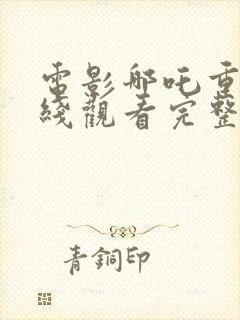 電影哪吒重
綫觀看完整
青銅印